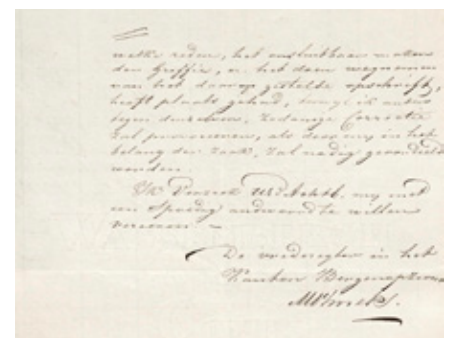 welke reden, het onsluitbaar maken
den Griffie, en het doen wegnemen
van het daarop gestelde opschrift,
heeft plaats gehad, terwijl ik anders
tegen denzelven, zodanige Correctie
zal provoceren, als door mij in het
belang der zaak, zal nodig geoordeeld
worden.
Ik Verzoek UEd. Achtb. mij met
een Spoedig andwoord te willen
vereeren —
De vrederegter in het
Kanton Bergenopzoom